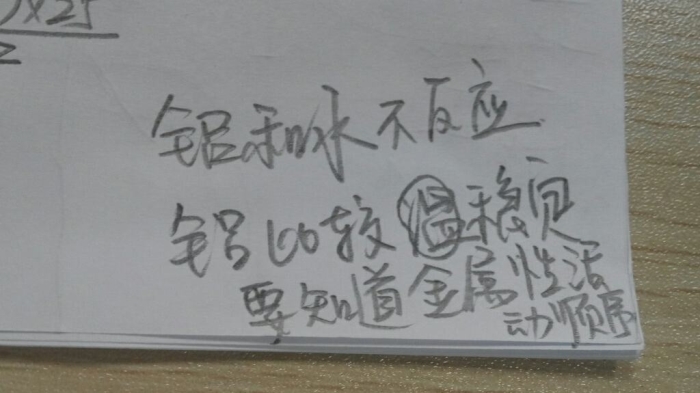 )×25
2
铝和水不反应
铝比较温稳定
要知道金属性活
动顺序